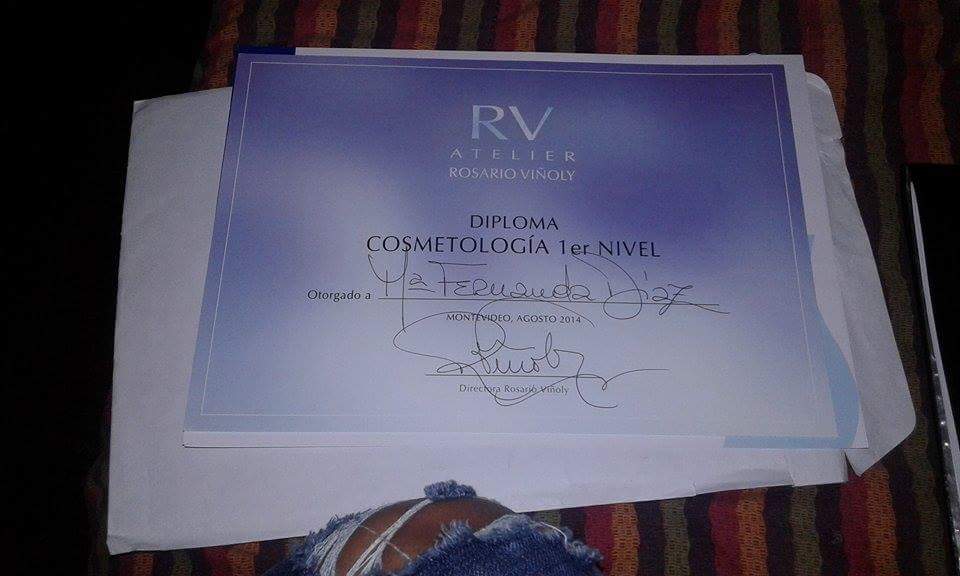 RV
ATELIER
ROSARIO VIÑOLY
DIPLOMA
COSMETOLOGÍA 1er NIVEL
Otorgado a Ma Fernanda Díaz
MONTEVIDEO, AGOSTO 2014
RViñoly
Directora Rosario Viñoly